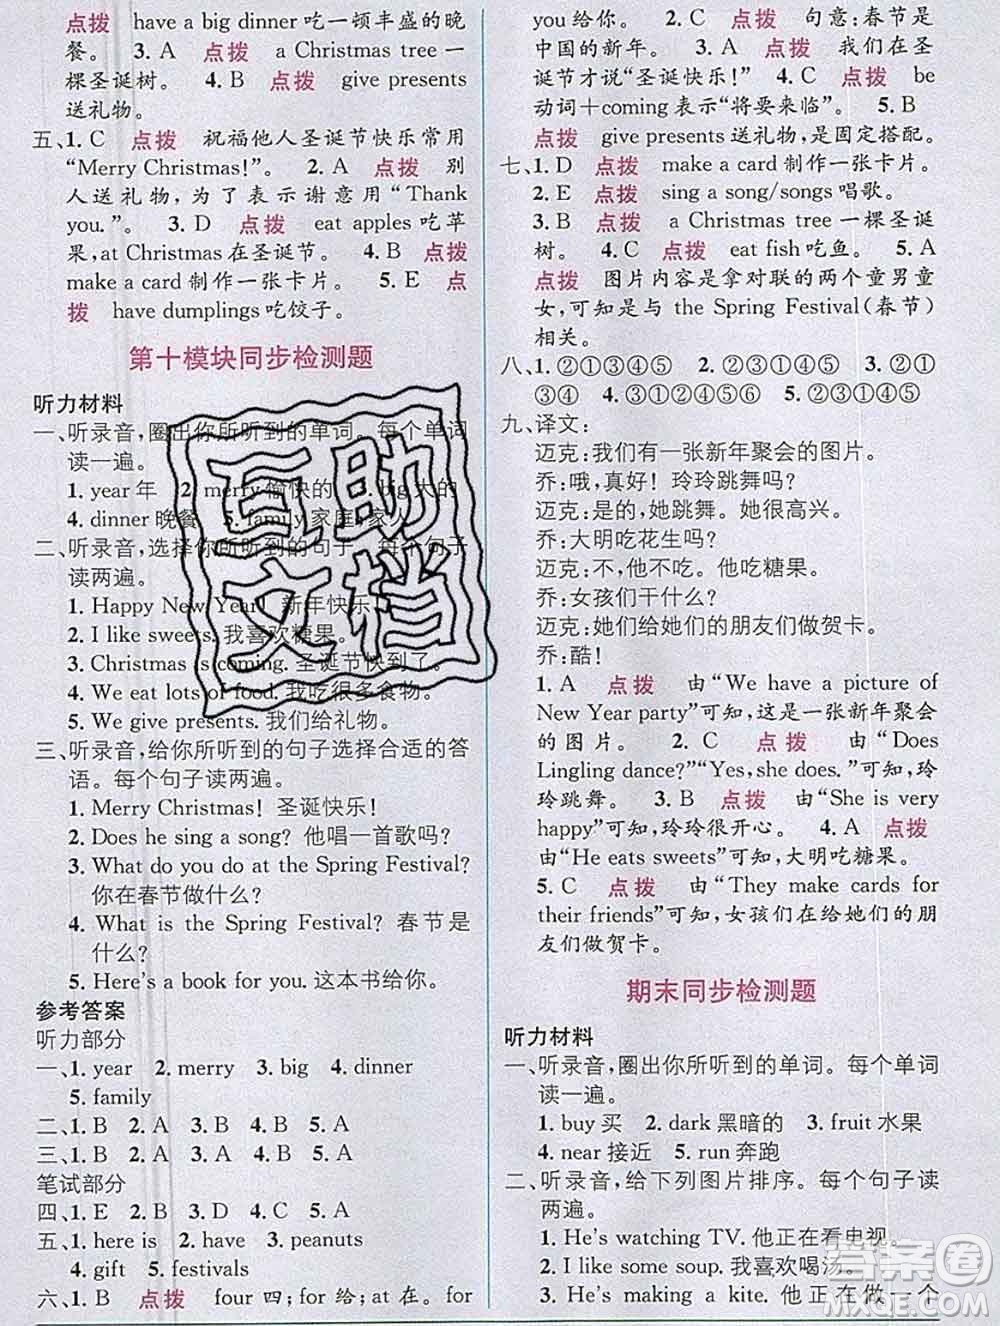 点拨 have a big dinner吃一顿丰盛的晚
餐。 3. A 点拨 a Christmas tree 一
棵圣诞树。 4. B 点拨 give presents
送礼物。
五、1. C 点拨 祝福他人圣诞节快乐常用
“Merry Christmas!”。 2. A 点拨 别
人送礼物,为了表示谢意用“Thank
you.”。 3. D 点拨 eat apples吃苹
果,at Christmas在圣诞节。 4. B 点拨
make a card 制作一张卡片。 5. E 点
拨 have dumplings吃饺子。
第十模块同步检测题
听力材料
一、听录音,圈出你所听到的单词。每个单词
读一遍。
1. year 年 2. merry愉快的 3. big大的
4. dinner 晚餐 5. family家庭;家人
二、听录音,选择你所听到的句子。每个句子
读两遍。
1. Happy New Year! 新年快乐!
2. I like sweets. 我喜欢糖果。
3. Christmas is coming. 圣诞节快到了。
4. We eat lots of food. 我吃很多食物。
5. We give presents. 我们给礼物。
三、听录音,给你所听到的句子选择合适的答
语。每个句子读两遍。
1. Merry Christmas! 圣诞快乐!
2. Does he sing a song? 他唱一首歌吗?
3. What do you do at the Spring Festival?
你在春节做什么?
4. What is the Spring Festival? 春节是
什么?
5. Here's a book for you. 这本书给你。
参考答案
听力部分
一、1. year 2. merry 3. big 4. dinner
5. family
二、1. B 2. A 3. B 4. B 5. A
三、1. B 2. A 3. A 4. B 5. A
笔试部分
四、1. E 2. B 3. D 4. C 5. A
五、1. here is 2. have 3. peanuts
4. gift 5. festivals
六、1. B 点拨 four 四;for 给;at 在。for
you给你。 2. C 点拨 句意:春节是
中国的新年。 3. A 点拨 我们在圣
诞节才说“圣诞快乐!” 4. C 点拨 be
动词+coming 表示“将要来临”。 5. B
点拨 give presents送礼物,是固定搭配。
七、1. D 点拨 make a card制作一张卡片。
2. E 点拨 sing a song/songs 唱歌。
3. B 点拨 a Christmas tree 一棵圣诞
树。 4. C 点拨 eat fish吃鱼。 5. A
点拨 图片内容是拿对联的两个童男童
女,可知是与 the Spring Festival(春节)
相关。
八、1. ②①③④⑤ 2. ②①③④⑤ 3. ②①
③④ 4. ③①②④⑥⑤ 5. ③②①④⑤
九、译文:
迈克:我们有一张新年聚会的图片。
乔:哦,真好! 玲玲跳舞吗?
迈克:是的,她跳舞。她很高兴。
乔:大明吃花生吗?
迈克:不,他不吃。他吃糖果。
乔:女孩们干什么?
迈克:她们给她们的朋友们做贺卡。
乔:酷!
1. A 点拨 由“We have a picture of
New Year party”可知,这是一张新年聚会
的图片。 2. C 点拨 由“Does
Lingling dance?”“Yes, she does.”可知,玲
玲跳舞。 3. B 点拨 由“She is very
happy”可知,玲玲很开心。 4. A 点拨
由“He eats sweets”可知,大明吃糖果。
5. C 点拨 由“They make cards for
their friends”可知,女孩们在给她们的朋
友们做贺卡。
期末同步检测题
听力材料
一、听录音,圈出你所听到的单词。每个单词
读一遍。
1. buy买 2. dark 黑暗的 3. fruit 水果
4. near 接近 5. run 奔跑
二、听录音,给下列图片排序。每个句子读
两遍。
1. He's watching TV. 他正在看电视。
2. I like some soup. 我喜欢喝汤。
3. He's making a kite. 他正在做一个
互助
文档
答案圈
MXQE.COM